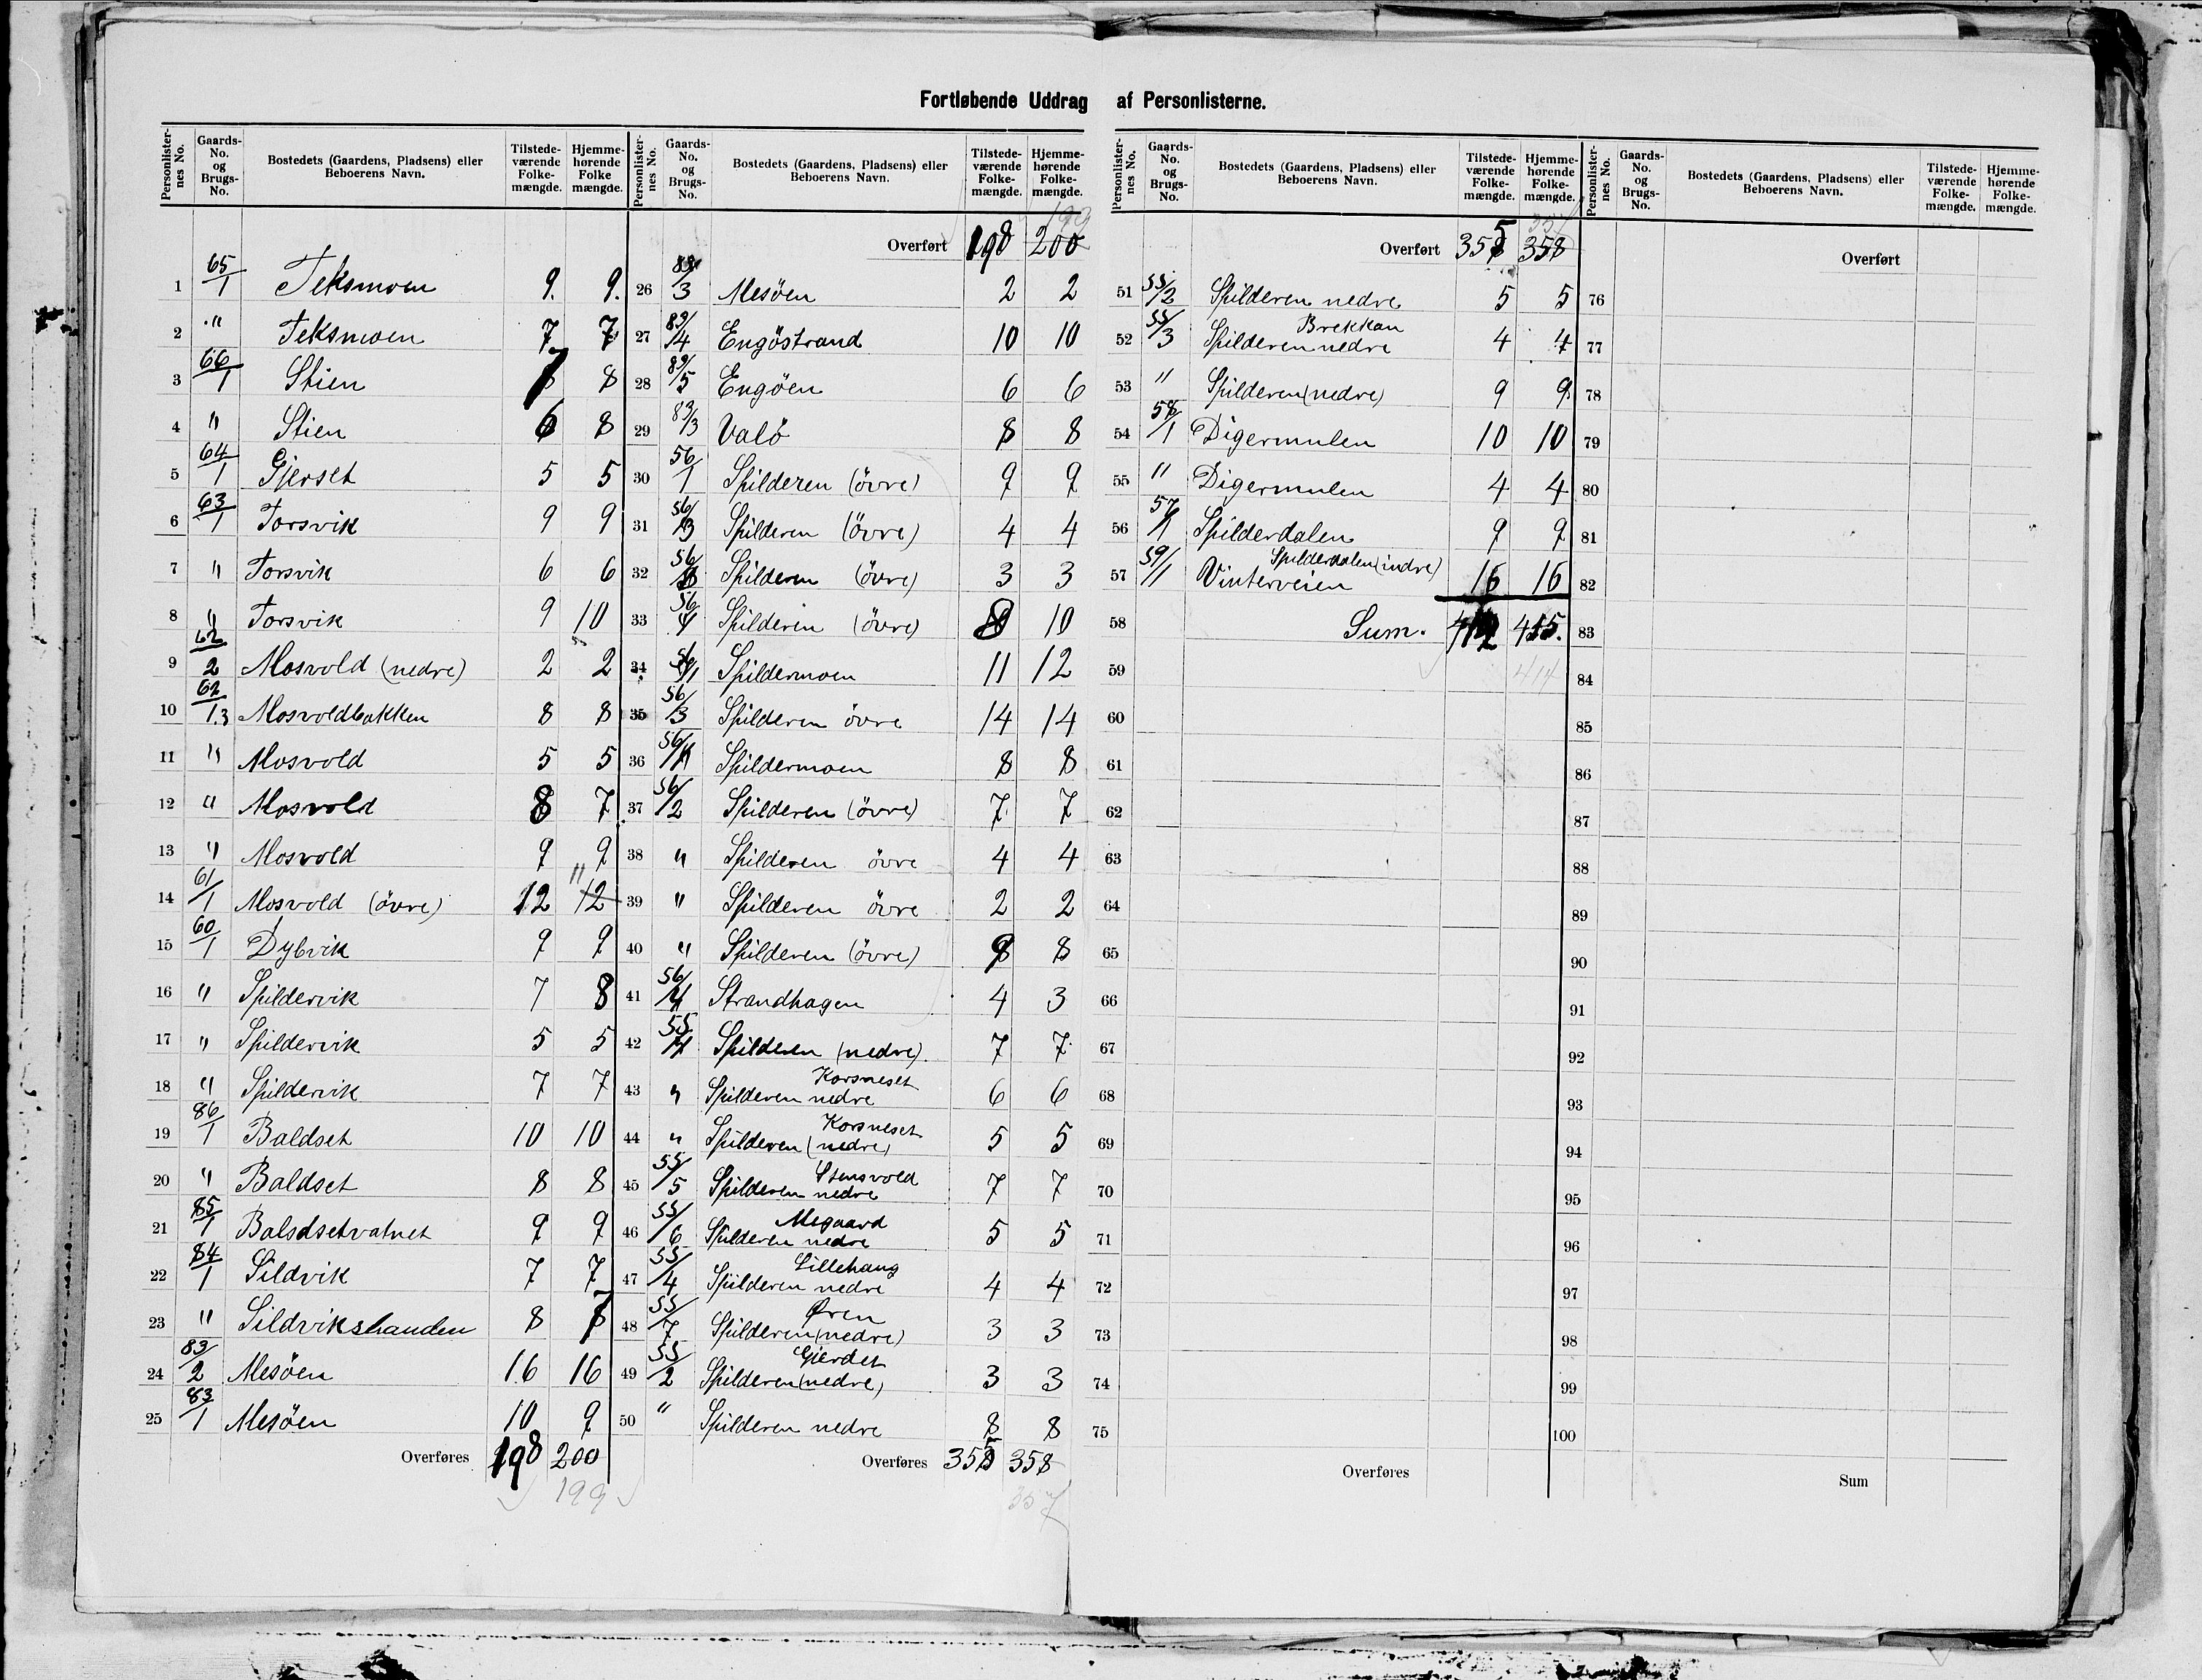 Fortløbende Uddrag af Personlisterne.
Personlister-nes No. | Gaards-No. og Brugs-No. | Bostedets (Gaardens, Pladsens) eller Beboerens Navn. | Tilstede-værende Folke-mængde. | Hjemme-hørende Folke mængde.
1 65/1 Teksmoen 9. 9.
2 " Teksmoen 7 7
3 66/1 Stien 7 8
4 " Stien 6 8
5 64/1 Gjerset 5 5
6 63/1 Torsvik 9 9
7 " Torsvik 6 6
8 " Torsvik 9 10
9 62/2 Mosvold (nedre) 2 2
10 62/1.3 Mosvoldbakken 8 8
11 " Mosvold 5 5
12 " Mosvold 8 7
13 " Mosvold 9 9
14 61/1 Mosvold (övre) 12 12 11
15 60/1 Dybvik 9 9
16 " Spildervik 7 8
17 " Spildervik 5 5
18 " Spildervik 7 7
19 86/1 Baldset 10 10
20 " Baldset 8 8
21 85/1 Balsdsetvatnet 9 9
22 84/1 Sildvik 7 7
23 " Sildvikshanden 8 7
24 83/2 Mesöen 16 16
25 83/1 Mesöen 10 9
Overføres 198 200
199
Personlister-nes No. | Gaards-No. og Brugs-No. | Bostedets (Gaardens, Pladsens) eller Beboerens Navn. | Tilstede-værende Folke-mængde. | Hjemme-hørende Folke-mængde.
199
Overført 198 200
26 83/3 Mesöen 2 2
27 83/4 Engöstrand 10 10
28 83/5 Engöen 6 6
29 83/3 Valö 8 8
30 56/1 Spilderen (övre) 9 9
31 56/3 Spilderen (övre) 4 4
32 56/ Spilderen (övre) 3 3
33 56/4 Spilderen (övre) 8 10
34 56/1 Spildermoen 11 12
35 56/3 Spilderen övre 14 14
36 56/1 Spildermoen 8 8
37 56/2 Spilderen (övre) 7 7
38 " Spilderen övre 4 4
39 " Spilderen övre 2 2
40 " Spilderen (övre) 8 8
41 56/4 Strandhagen 4 3
42 55/1 Spilderen (nedre). 7 7
43 " Korsneset Spilderen nedre 6 6
44 " Korsneset Spilderen (nedre) 5 5
45 55/5 Stensvold Spilderen nedre 7 7
46 55/6 Megaard Spilderen nedre 5 5
47 55/4 Lillehaug Spilderen nedre 4 4
48 55/7 Øren Spilderen (nedre) 3 3
49 55/2 Gjerdet Spilderen (nedre) 3 3
50 " Spilderen nedre 8 8
Overføres 355 358
357
Personlister-nes No. | Gaards-No. og Brugs-No. | Bostedets (Gaardens, Pladsens) eller Beboerens Navn. | Tilstede-værende Folke-mængde. | Hjemme-hørende Folke-mængde.
357
Overført 355 358
51 55/2 Spilderen nedre 5 5
52 55/3 Brekkan Spilderen nedre 4 4
53 " Spilderen (nedre) 9 9
54 58/1 Digermulen 10 10
55 " Digermulen 4 4
56 57/1 Spilderdalen 9 9
57 59/1 Spilderdalen (indre) Vinterveien 16 16
58 Sum. 412 415.
59 414
60
61
62
63
64
65
66
67
68
69
70
71
72
73
74
75
Overføres
Personlister-nes No. | Gaards-No. og Brugs-No. | Bostedets (Gaardens, Pladsens) eller Beboerens Navn. | Tilstede-værende Folke-mængde. | Hjemme-hørende Folke-mængde.
Overført
76
77
78
79
80
81
82
83
84
85
86
87
88
89
90
91
92
93
94
95
96
97
98
99
100
Sum